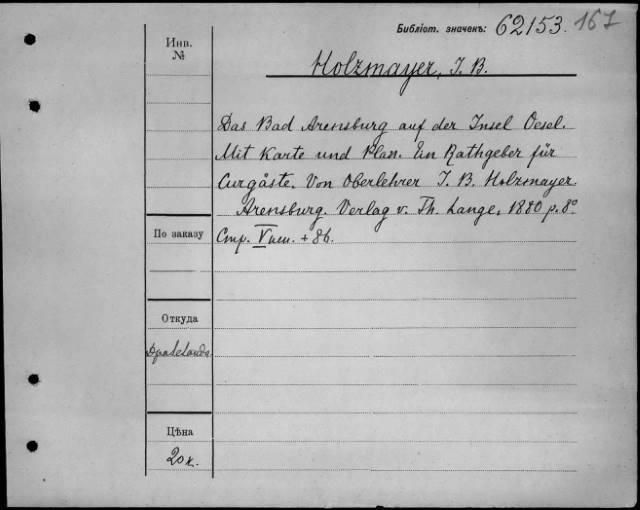 Библіот. значекъ: 62153. 167
Инв.
№
Holzmayer, J. B.
Das Bad Arensburg auf der Insel Oesel.
Mit Karte und Plan. Ein Rathgeber für
Curgäste. Von Oberlehrer J. B. Holzmayer.
Arensburg. Verlag v. Th. Lange, 1880 р. 8°
По заказу
Стр. V нен. + 86.
Откуда
Цѣна
20 к.